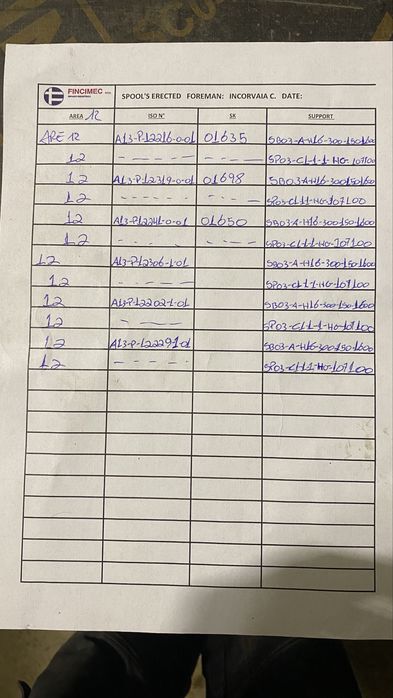 FINCIMEC
SPOOL'S ERECTED FOREMAN: INCORVAIA C. DATE:
AREA 12 ISO N° SK SUPPORT
ARE 12 A13-P-12216-0-01 01635 SB03-A-H16-300-150-1600
12 - - - - - - - - SP03-CL-1-1-HG-107100
12 A13-P-12319-0-01 01698 SB03-A-H16-300-150-1600
12 - - - - - - - - SP03-CL-1-1-HG-107100
12 A13-P-12241-0-01 01650 SB03-A-H16-300-150-1600
12 - - - - - - - - SP03-CL-1-1-HG-107100
12 A13-P-12306-1-01 SB03-A-H16-300-150-1600
12 - - - - SP03-CL-1-1-HG-107100
12 A13-P-12202-1-01 SB03-A-H16-300-150-1600
12 - - - SP03-CL-1-1-HG-107100
12 A13-P-12229-1-01 SB03-A-H16-300-150-1600
12 - - - - SP03-CL-1-1-HG-107100